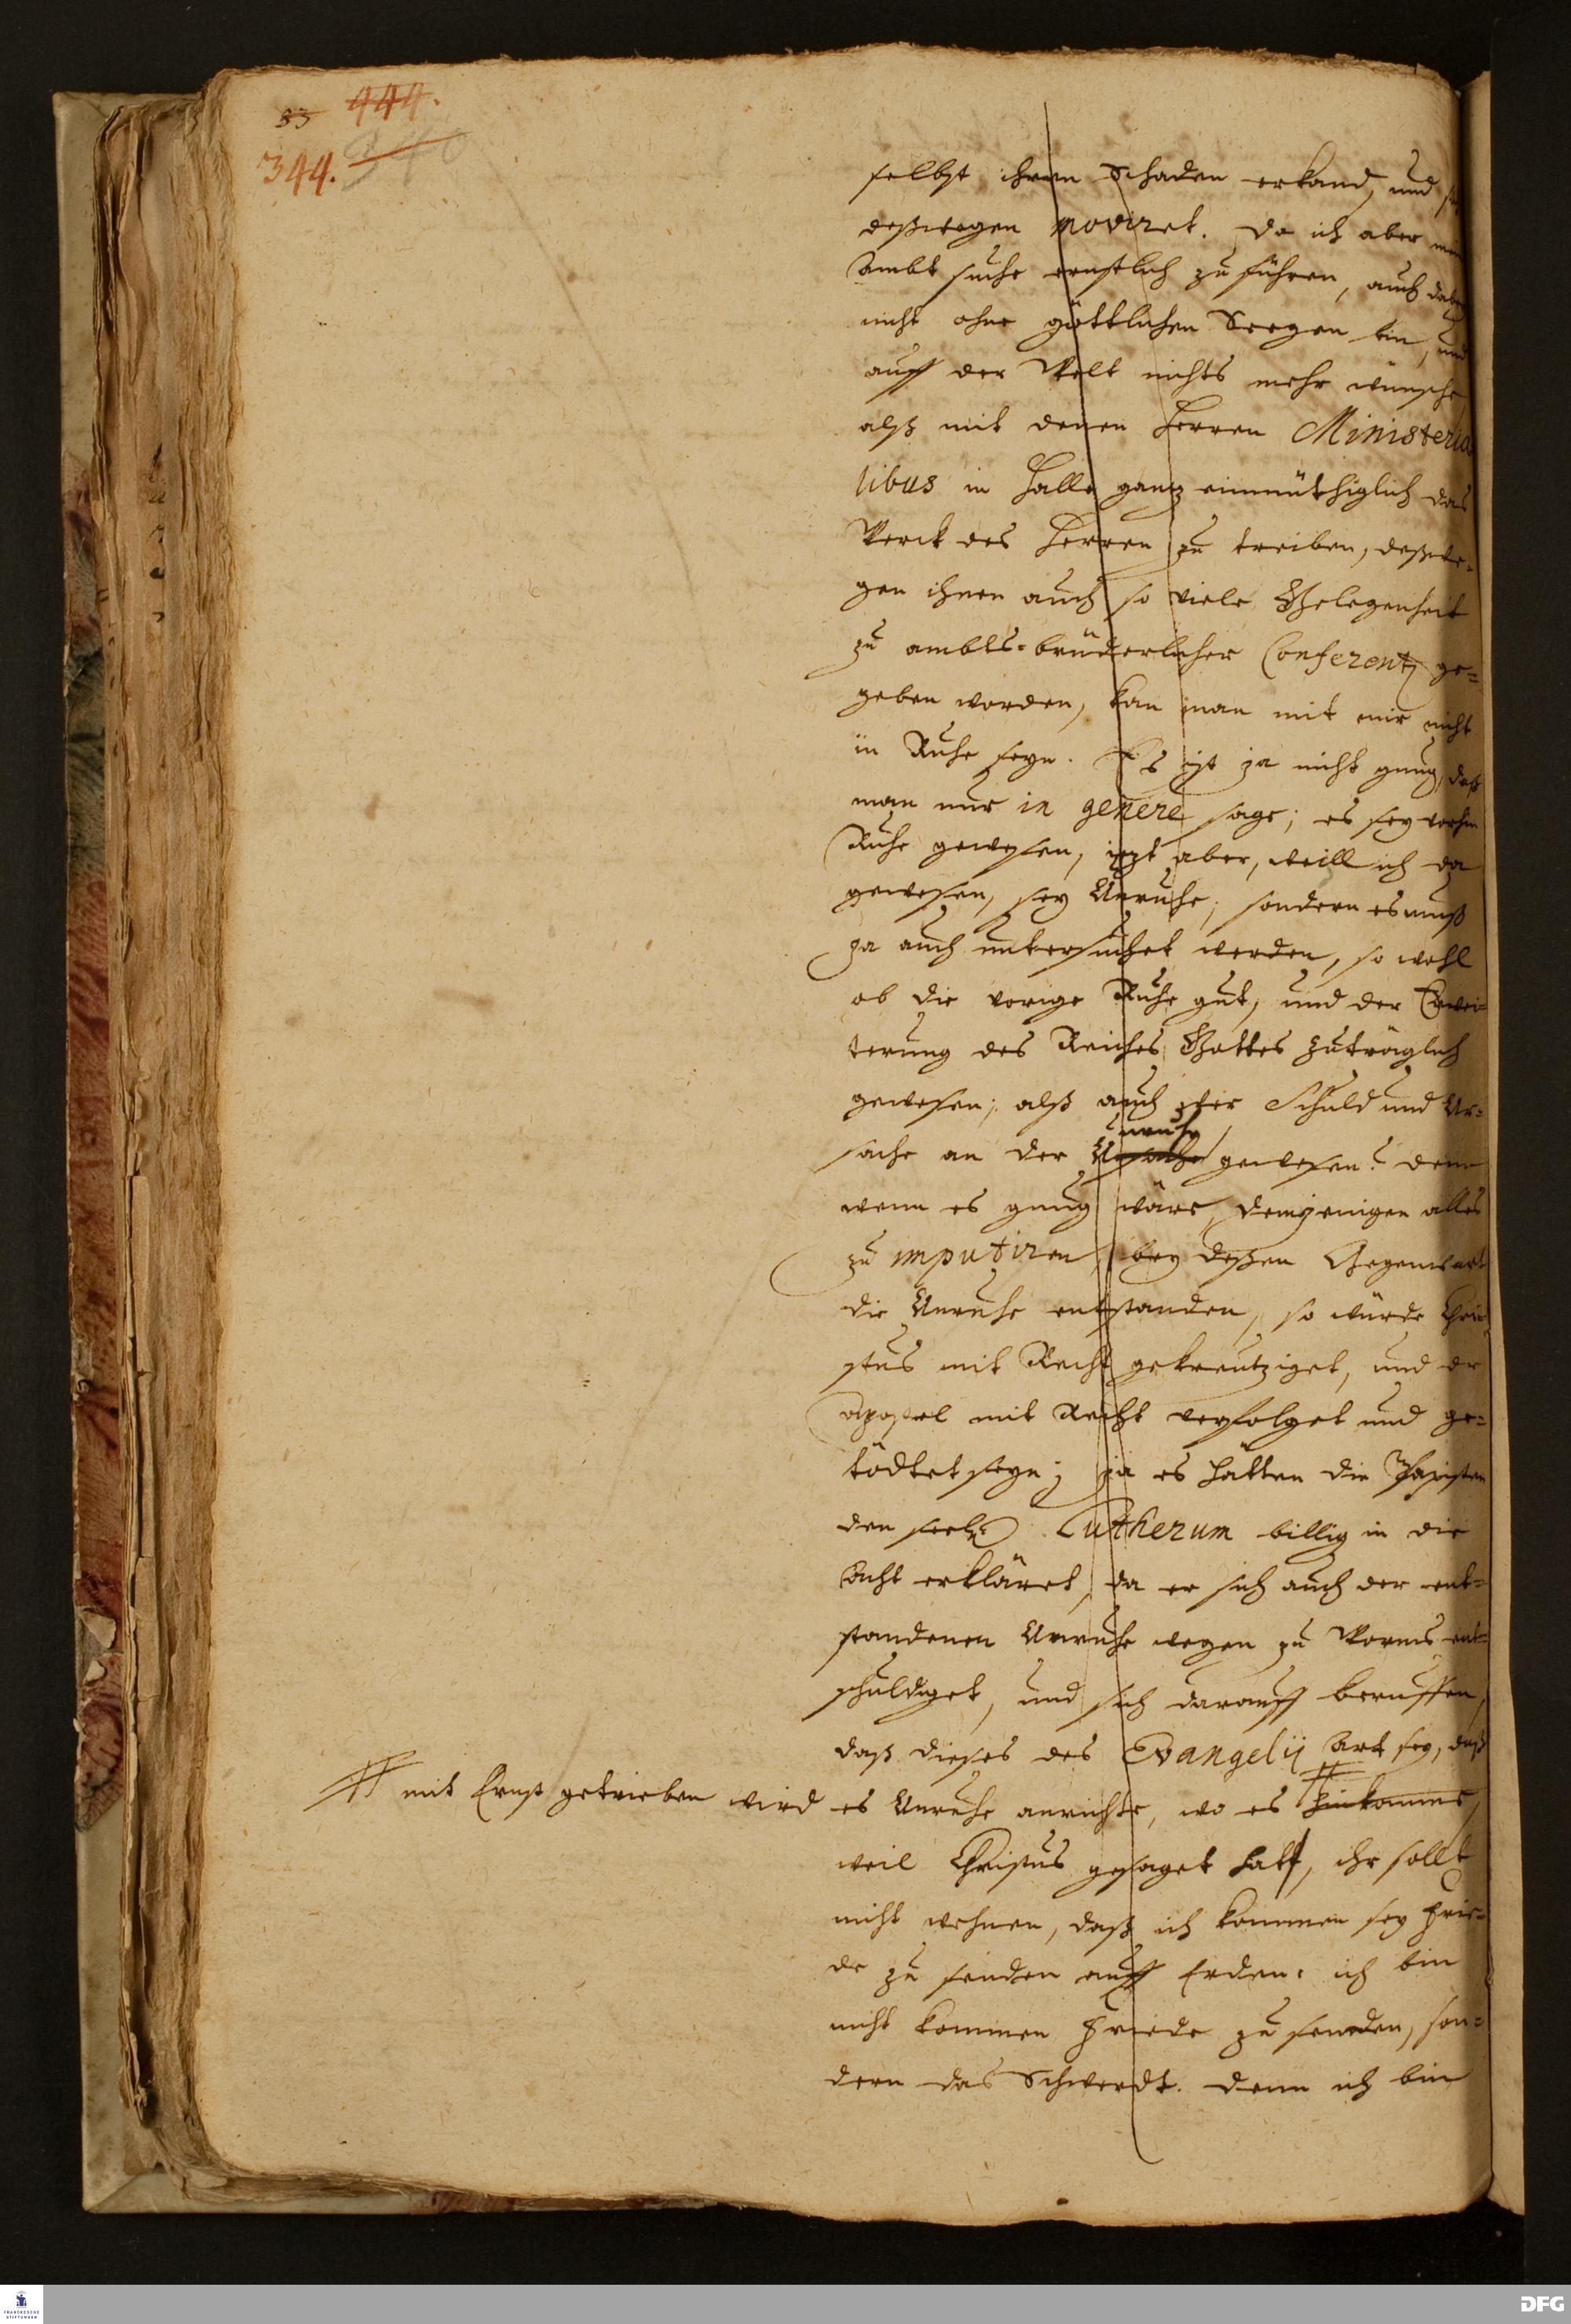 33 444.
344. 340
selbst ihren Schaden erkand, und
deßwegen moviret. Da ich aber mein
Ambt suche ernstlich zu führen, auch dabey
nicht ohne göttlichen Seegen bin, und
auff der Welt nichts mehr wünsche,
alß mit denen Herren Ministeria
libus in Halle gantz einmüthiglich das
Werck des Herren zu treiben, deßwe-
gen ihnen auch so viele Gelegenheit
zu ambts-brüderlicher Conferentz ge-
geben worden, kan man mit mir nicht
in Ruhe seyn. Es ist ja nicht gnug, daß
man nur in genere sage; es sey vorhin
Ruhe gewesen, jezt aber, weill ich da
gewesen, sey Unruhe; sondern es muß
ja auch untersuchet werden, so wohl
ob die vorige Ruhe gut, und der Erwei-
terung des Reiches Gottes zuträglich
gewesen; alß auch wer Schuld und Ur-
unruhe
sache an der Ursache gewesen? denn
wenn es gnug wäre, demjenigen alles
zu imputiren, bey deßen Gegenwart
die Unruhe entstanden, so würde Chri
stus mit Recht gekreutziget, und der
Apostel mit Recht verfolget und ge-
tödtet seyn; ja es hätten die Papisten
den seel. Lutherum billig in die
Acht erkläret, da er sich auch der ent-
standenen Unruhe wegen zu Worms ent-
schuldiget, und sich darauff beruffen,
daß dieses des Evangelij Art sey, daß
# mit Ernst getrieben wird
es Unruhe anrichte, wo es # hinkomme,
weil Christus gesaget hatt, ihr sollt
nicht wehnen, daß ich kommen sey Frie-
de zu senden auff Erden: ich bin
nicht kommen Friede zu senden, son-
dern das Schwerdt. Denn ich bin
FRANCKESCHE
STIFTUNGEN
DFG